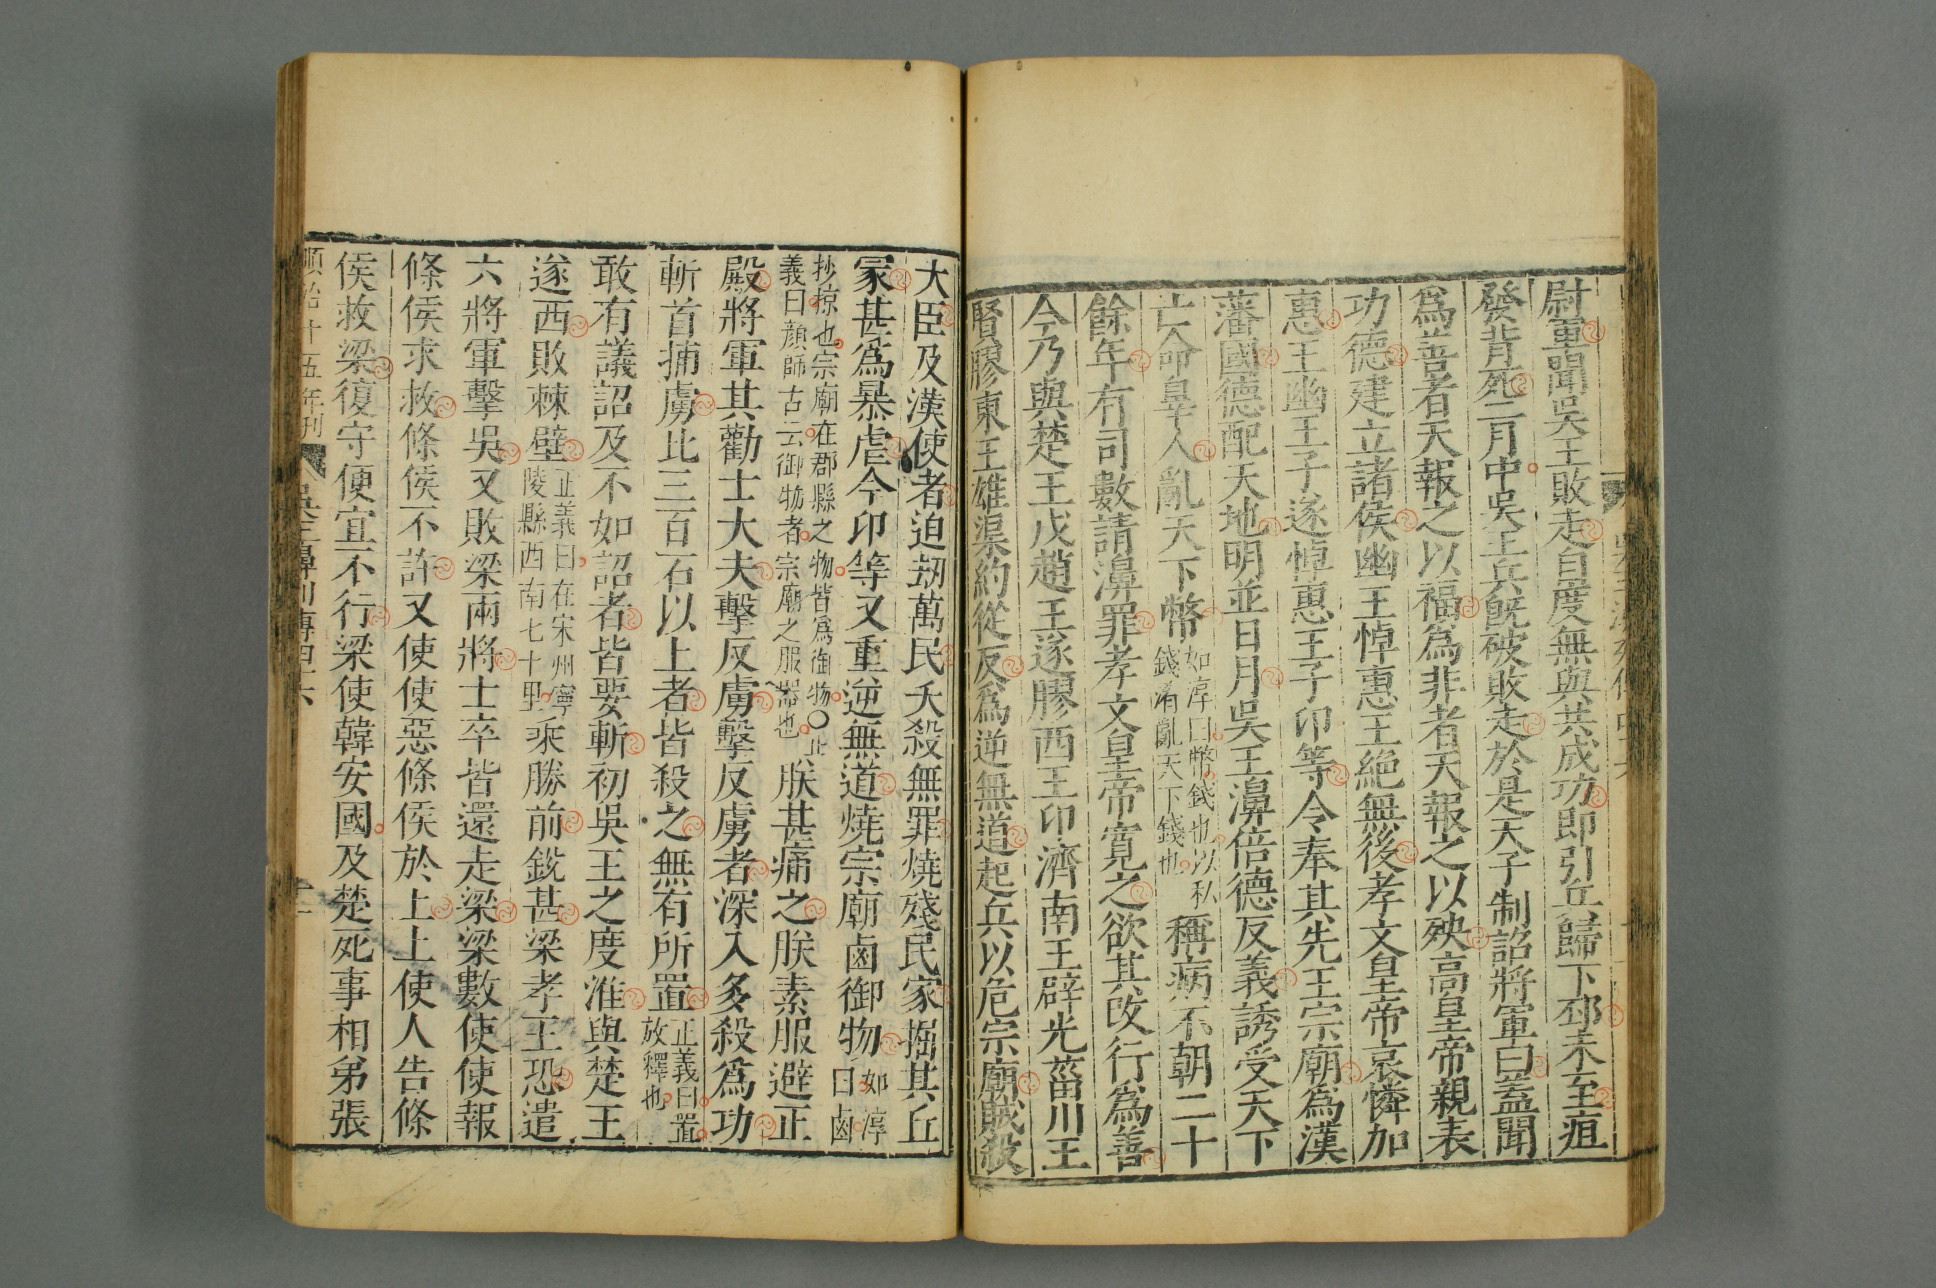 尉軍聞吳王敗走自度無與共成功即引兵歸下邳未至疽
發背死二月中吳王兵既破敗走於是天子制詔將軍曰蓋聞
爲善者天報之以福爲非者天報之以殃高皇帝親表
功德建立諸侯幽王悼惠王絕無後孝文皇帝哀憐加
惠王幽王子遂悼惠王子卬等令奉其先王宗廟爲漢
藩國德配天地明並日月吳王濞倍德反義誘受天下
亡命辠人亂天下幣如淳曰幣錢也以私錢淆亂天下錢也稱病不朝二十
餘年有司數請濞罪孝文皇帝寬之欲其改行爲善
今乃與楚王戊趙王遂膠西王卬濟南王辟光菑川王
賢膠東王雄渠約從反爲逆無道起兵以危宗廟賊殺
大臣及漢使者迫劫萬民夭殺無罪燒殘民家掘其丘
冢甚爲暴虐今卬等又重逆無道燒宗廟鹵御物如淳曰鹵
抄掠也宗廟在郡縣之物皆爲御物○正義曰顏師古云御物者宗廟之服器也朕甚痛之朕素服避正
殿將軍其勸士大夫擊反虜擊反虜者深入多殺爲功
斬首捕虜比三百石以上者皆殺之無有所置正義曰置放釋也
敢有議詔及不如詔者皆要斬初吳王之度淮與楚王
遂西敗棘壁正義曰在宋州寧陵縣西南七十里乘勝前銳甚梁孝王恐遣
六將軍擊吳又敗梁兩將士卒皆還走梁梁數使使報
條侯求救條侯不許又使使惡條侯於上上使人告條
侯救梁復守便宜不行梁使韓安國及楚死事相弟張
順治十五年刊 吳王濞列傳四六 十一